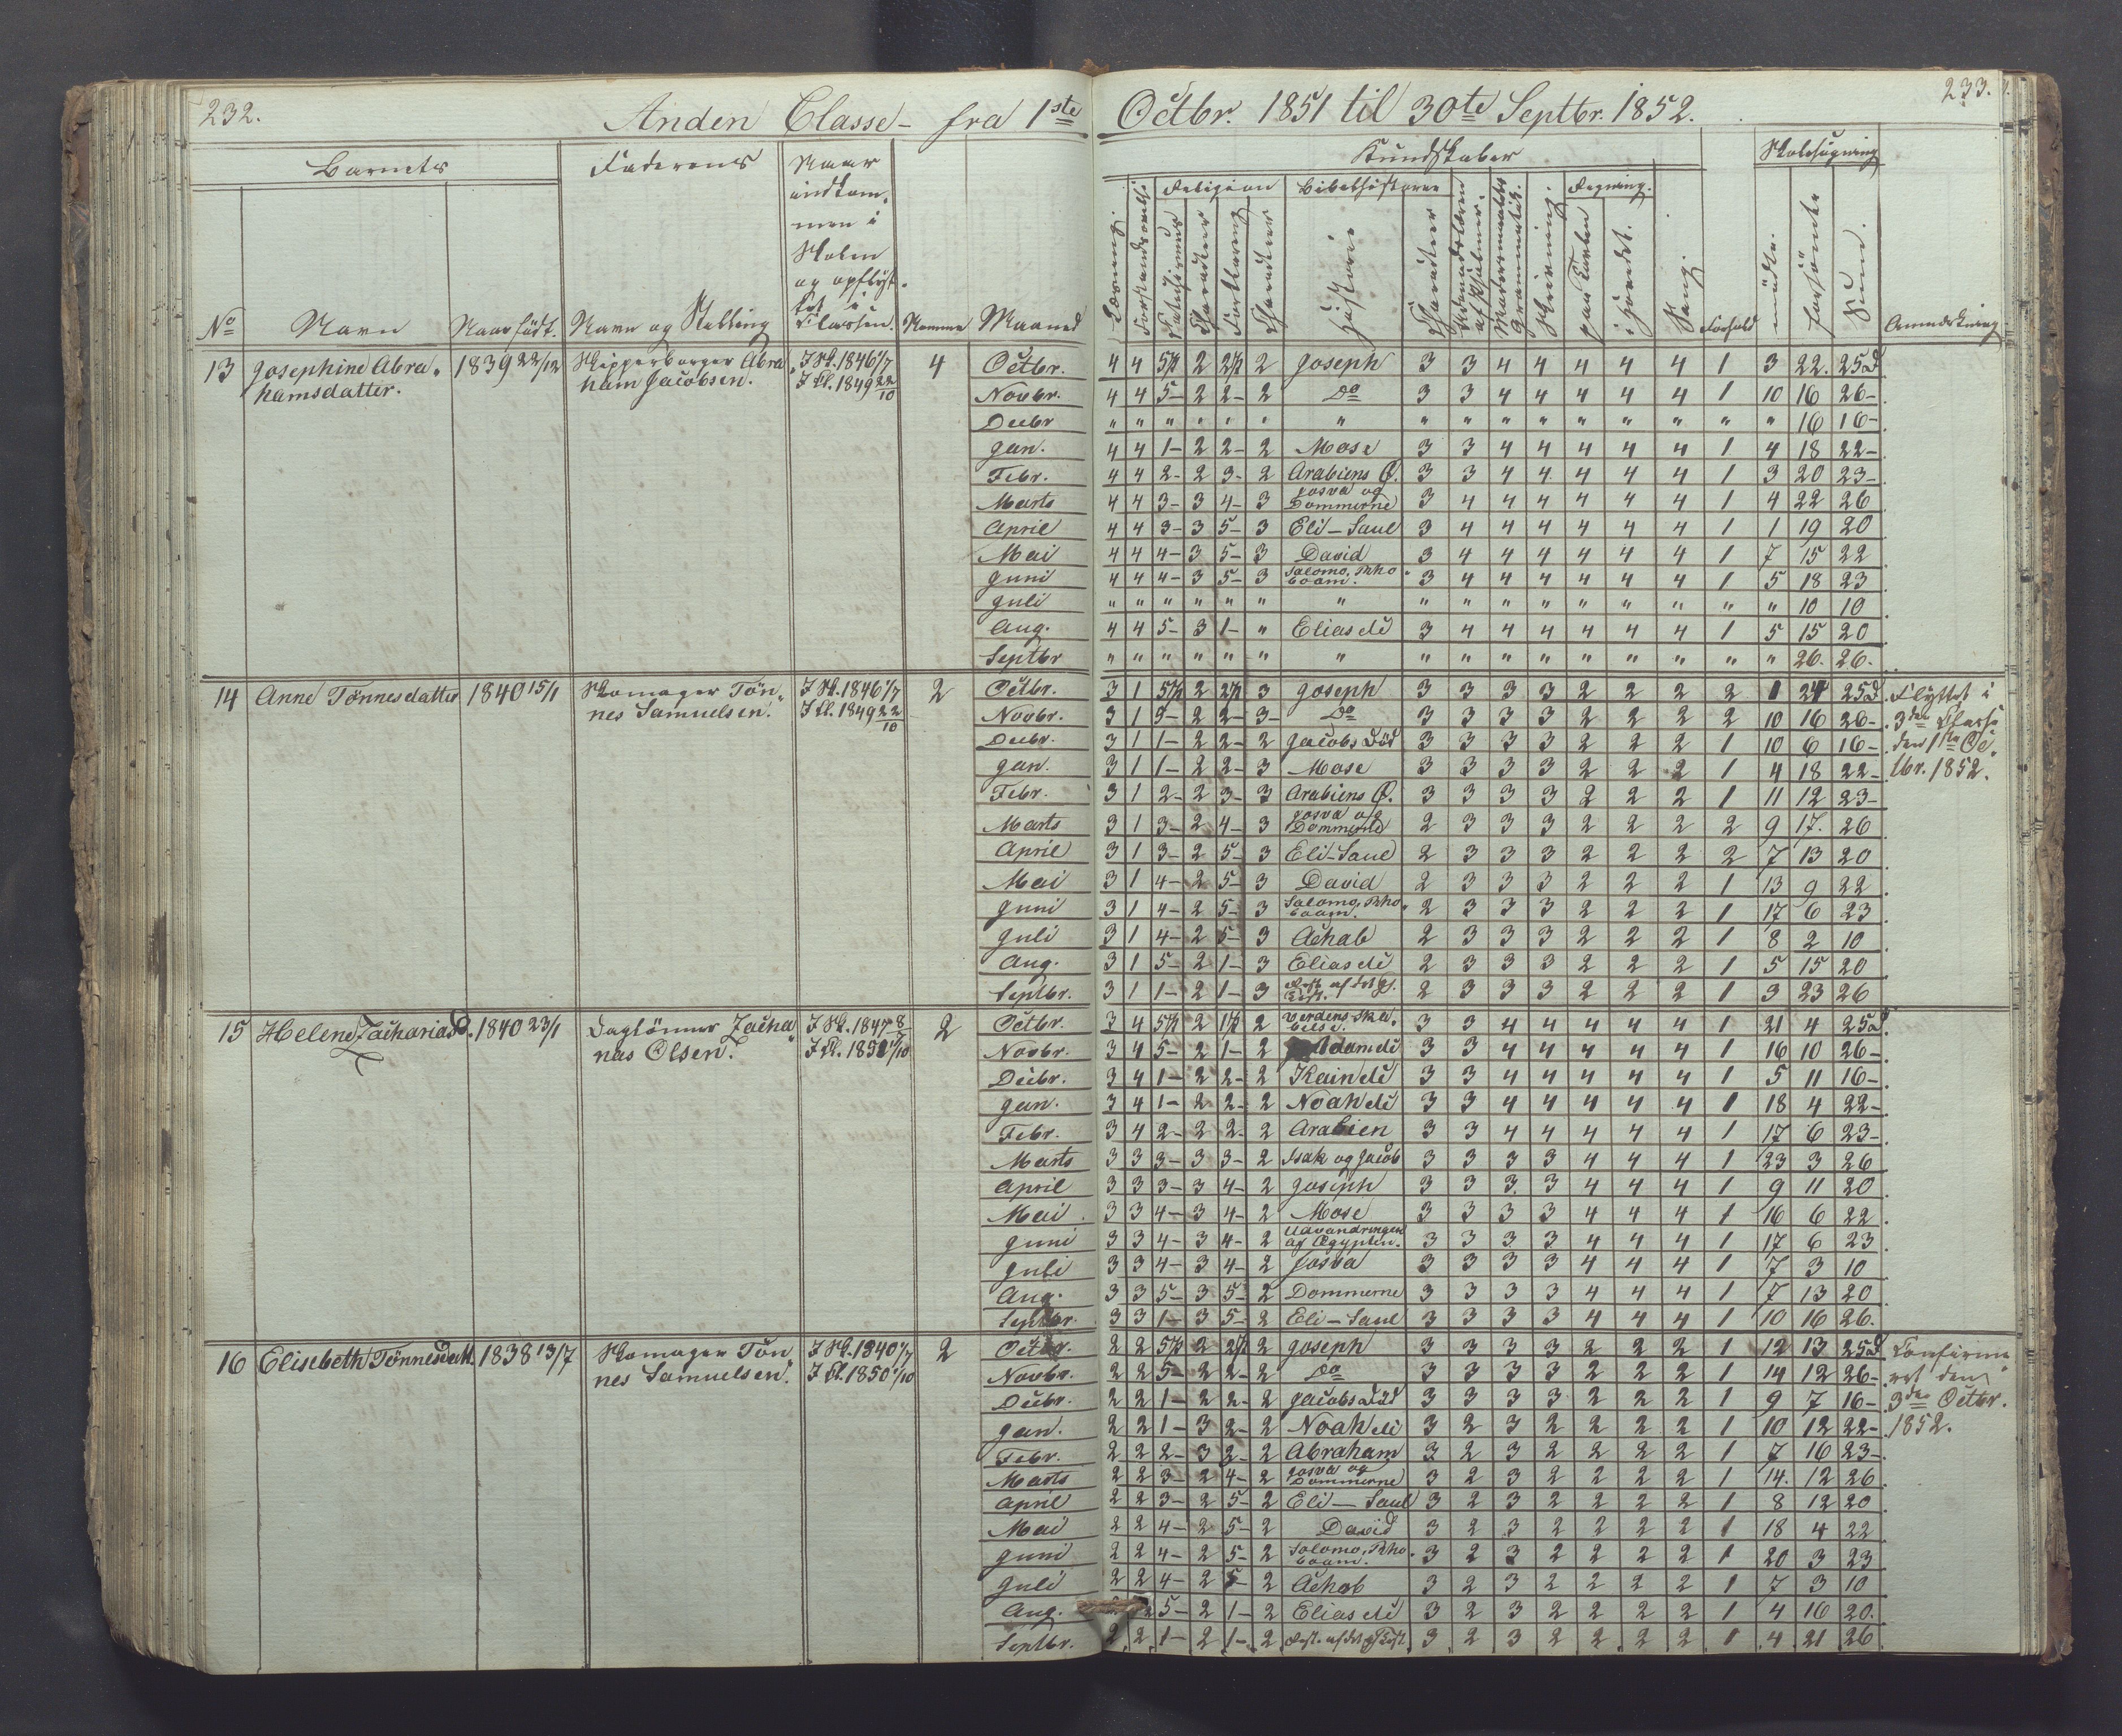 232.
Anden Classe - fra 1ste Octbr. 1851 til 30te Septbr. 1852.
233.
Barnets Faderens Naar
indkom-
men i
Skolen
og opflyt-
tet i
Classen.
No Navn Naar født. Navn og Stilling Nummer Maaned
Kundskaber Skolesøgning
Religion Bibelhistorie Regning.
Læsning. Forstandsøvelse Catechismus Charakteer Forklaring Charakteer Historie Charakteer Udenadslæren af Psalmer. Modersmaalets Grammatik. Skrivning. paa Tavlen i Hovedet. Sang. Forhold mødte. forsømte Sum. Anmærkning
13 Josephine Abra- 1839 22/12 Skipperborger Abra- I Sk. 1846 1/7 4 Octbr. 4 4 5½ 2 2½ 2 Joseph 3 3 4 4 4 4 4 1 3 22. 25d
hamsdatter. ham Jacobsen. I Cl. 1849 22/10
Novbr. 4 4 5- 2 2- 2 Do 3 3 4 4 4 4 4 1 10 16 26-
Decbr " " " " " " " " " " " " " " " " 16 16-
Jan. 4 4 1- 2 2- 2 Mose 3 3 4 4 4 4 4 1 4 18 22-
Febr. 4 4 2- 2 3- 2 Arabiens Ø. 3 3 4 4 4 4 4 1 3 20 23-
Marts 4 4 3- 3 4- 3 Josva og Dommerne 3 4 4 4 4 4 4 1 4 22 26
April 4 4 3- 3 5- 3 Eli - Saul 3 4 4 4 4 4 4 1 1 19 20
Mai 4 4 4- 3 5- 3 David 3 4 4 4 4 4 4 1 7 15 22
Juni 4 4 4- 3 5- 3 Salomo, Rho- boam. 3 4 4 4 4 4 4 1 5 18 23
Juli " " " " " " " " " " " " " " " " 10 10
Aug. 4 4 5- 3 1- " Elias etc 3 4 4 4 4 4 4 1 5 15 20
Septbr " " " " " " " " " " " " " " " " 26. 26.
14 Anne Tønnesdatter 1840 15/1 Skomager Tøn- I Sk. 1846 1/7 2 Octbr. 3 1 5½ 2 2½ 3 Joseph 3 3 3 3 2 2 2 2 1 24 25d. Flyttet i
nes Samuelsen. I Cl. 1849 22/10
Novbr. 3 1 5- 2 2- 3- Do 3 3 3 3 2 2 2 2 10 16 26- 3die Classe
Decbr. 3 1 1- 2 2- 2 Jacobs Død 3 3 3 3 2 2 2 1 10 6 16- den 1ste Oc-
Jan. 3 1 1- 2 2- 3 Mose 3 3 3 3 2 2 2 1 4 18 22- tbr. 1852.
Febr. 3 1 2- 2 3- 3 Arabiens Ø. 3 3 3 3 2 2 2 1 11 12 23-
Marts 3 1 3- 2 4- 3 Josva og Dommerne 2 3 3 3 2 2 2 2 9 17. 26
April 3 1 3- 2 5- 3 Eli - Saul 2 3 3 3 2 2 2 2 7 13 20
Mai 3 1 4- 2 5- 3 David 2 3 3 3 2 2 2 1 13 9 22
Juni 3 1 4- 2 5- 3 Salomo, Rho- boam. 2 3 3 3 2 2 2 1 17 6 23
Juli 3 1 4- 2 5- 3 Achab 2 3 3 3 2 2 2 1 8 2 10
Aug. 3 1 5- 2 1- 3 Elias etc 2 3 3 3 2 2 2 1 5 15 20
Septbr. 3 1 1- 2 1- 3 Rest. af det gl. Test. 2 3 3 3 2 2 2 1 3 23 26
15 Helene Zachariasd. 1840 23/1 Daglønner Zacha- I Sk. 1847 8/7 2 Octbr. 3 4 5½ 2 1½ 2 Verdens Ska- belse. 3 3 4 4 4 4 4 1 21 4 25d.
rias Olsen. I Cl. 1850 1/10
Novbr. 3 4 5- 2 1- 2 Adam etc 3 3 4 4 4 4 4 1 16 10 26-
Decbr. 3 4 1- 2 2- 2 Kain etc 3 3 4 4 4 4 4 1 5 11 16-
Jan. 3 4 1- 2 2- 2 Noah etc 3 3 4 4 4 4 4 1 18 4 22-
Febr. 3 4 2- 2 2- 2 Arabien 3 3 4 4 4 4 4 1 17 6 23-
Marts 3 3 3- 3 3- 2 Isak og Jacob 3 3 3 3 4 4 4 1 23 3 26
April 3 3 3- 3 4- 2 Joseph 3 3 3 3 4 4 4 1 9 11 20
Mai 3 3 4- 3 4- 2 Mose 3 3 3 3 4 4 4 1 16 6 22
Juni 3 3 4- 3 4- 2 Udvandringen af Ægypten. 3 3 3 3 4 4 4 1 17 6 23
Juli 3 3 4- 3 4- 2 Josva 3 3 3 3 4 4 4 1 7 3 10
Aug. 3 3 5- 3 5- 2 Dommerne 3 3 3 3 4 4 4 1 7 13 20
Septbr. 3 3 1- 3 5- 2 Eli - Saul 3 3 3 3 4 4 4 1 10 16 26.
16 Elisebeth Tønnesdatt. 1838 13/7 Skomager Tøn- I Sk. 1840 1/7 2 Octbr. 2 2 5½ 2 2½ 2 Joseph 3 3 3 3 2 2 2 1 12 13 25d Confirme-
nes Samuelsen. I Cl. 1850 1/10
Novbr. 2 2 5- 2 2- 2 Do 3 3 3 3 2 2 2 1 14 12 26- ret den
Decbr. 2 2 1- 2 2- 2 Jacobs Død 3 3 3 3 2 2 2 1 9 7 16- 3die Octbr.
Jan. 2 2 1- 3 2- 2 Noah etc 3 2 3 2 2 2 2 1 10 12 22- 1852.
Febr. 2 2 2- 3 2- 2 Abraham 3 2 3 2 2 2 2 1 7 16 23-
Marts 2 2 3- 2 4- 2 Josva og Dommerne 3 2 3 2 2 2 2 1 14. 12 26
April 2 2 3- 2 5- 2 Eli - Saul 3 2 3 2 2 2 2 1 8 12 20
Mai 2 2 4- 2 5- 2 David 3 2 3 2 2 2 2 1 18 4 22
Juni 2 2 4- 2 5- 2 Salomo, Rho- boam. 3 2 3 2 2 2 2 1 20 3 23
Juli 2 2 4- 2 5- 2 Achab 3 2 3 2 2 2 2 1 7 3 10
Aug. 2 2 5- 2 1- 2 Elias etc 3 2 3 2 2 2 2 1 4 16 20.
Septbr. 2 2 1- 2 1- 2 Rest. af det gl Test. 3 2 3 2 2 2 2 1 4 21 26